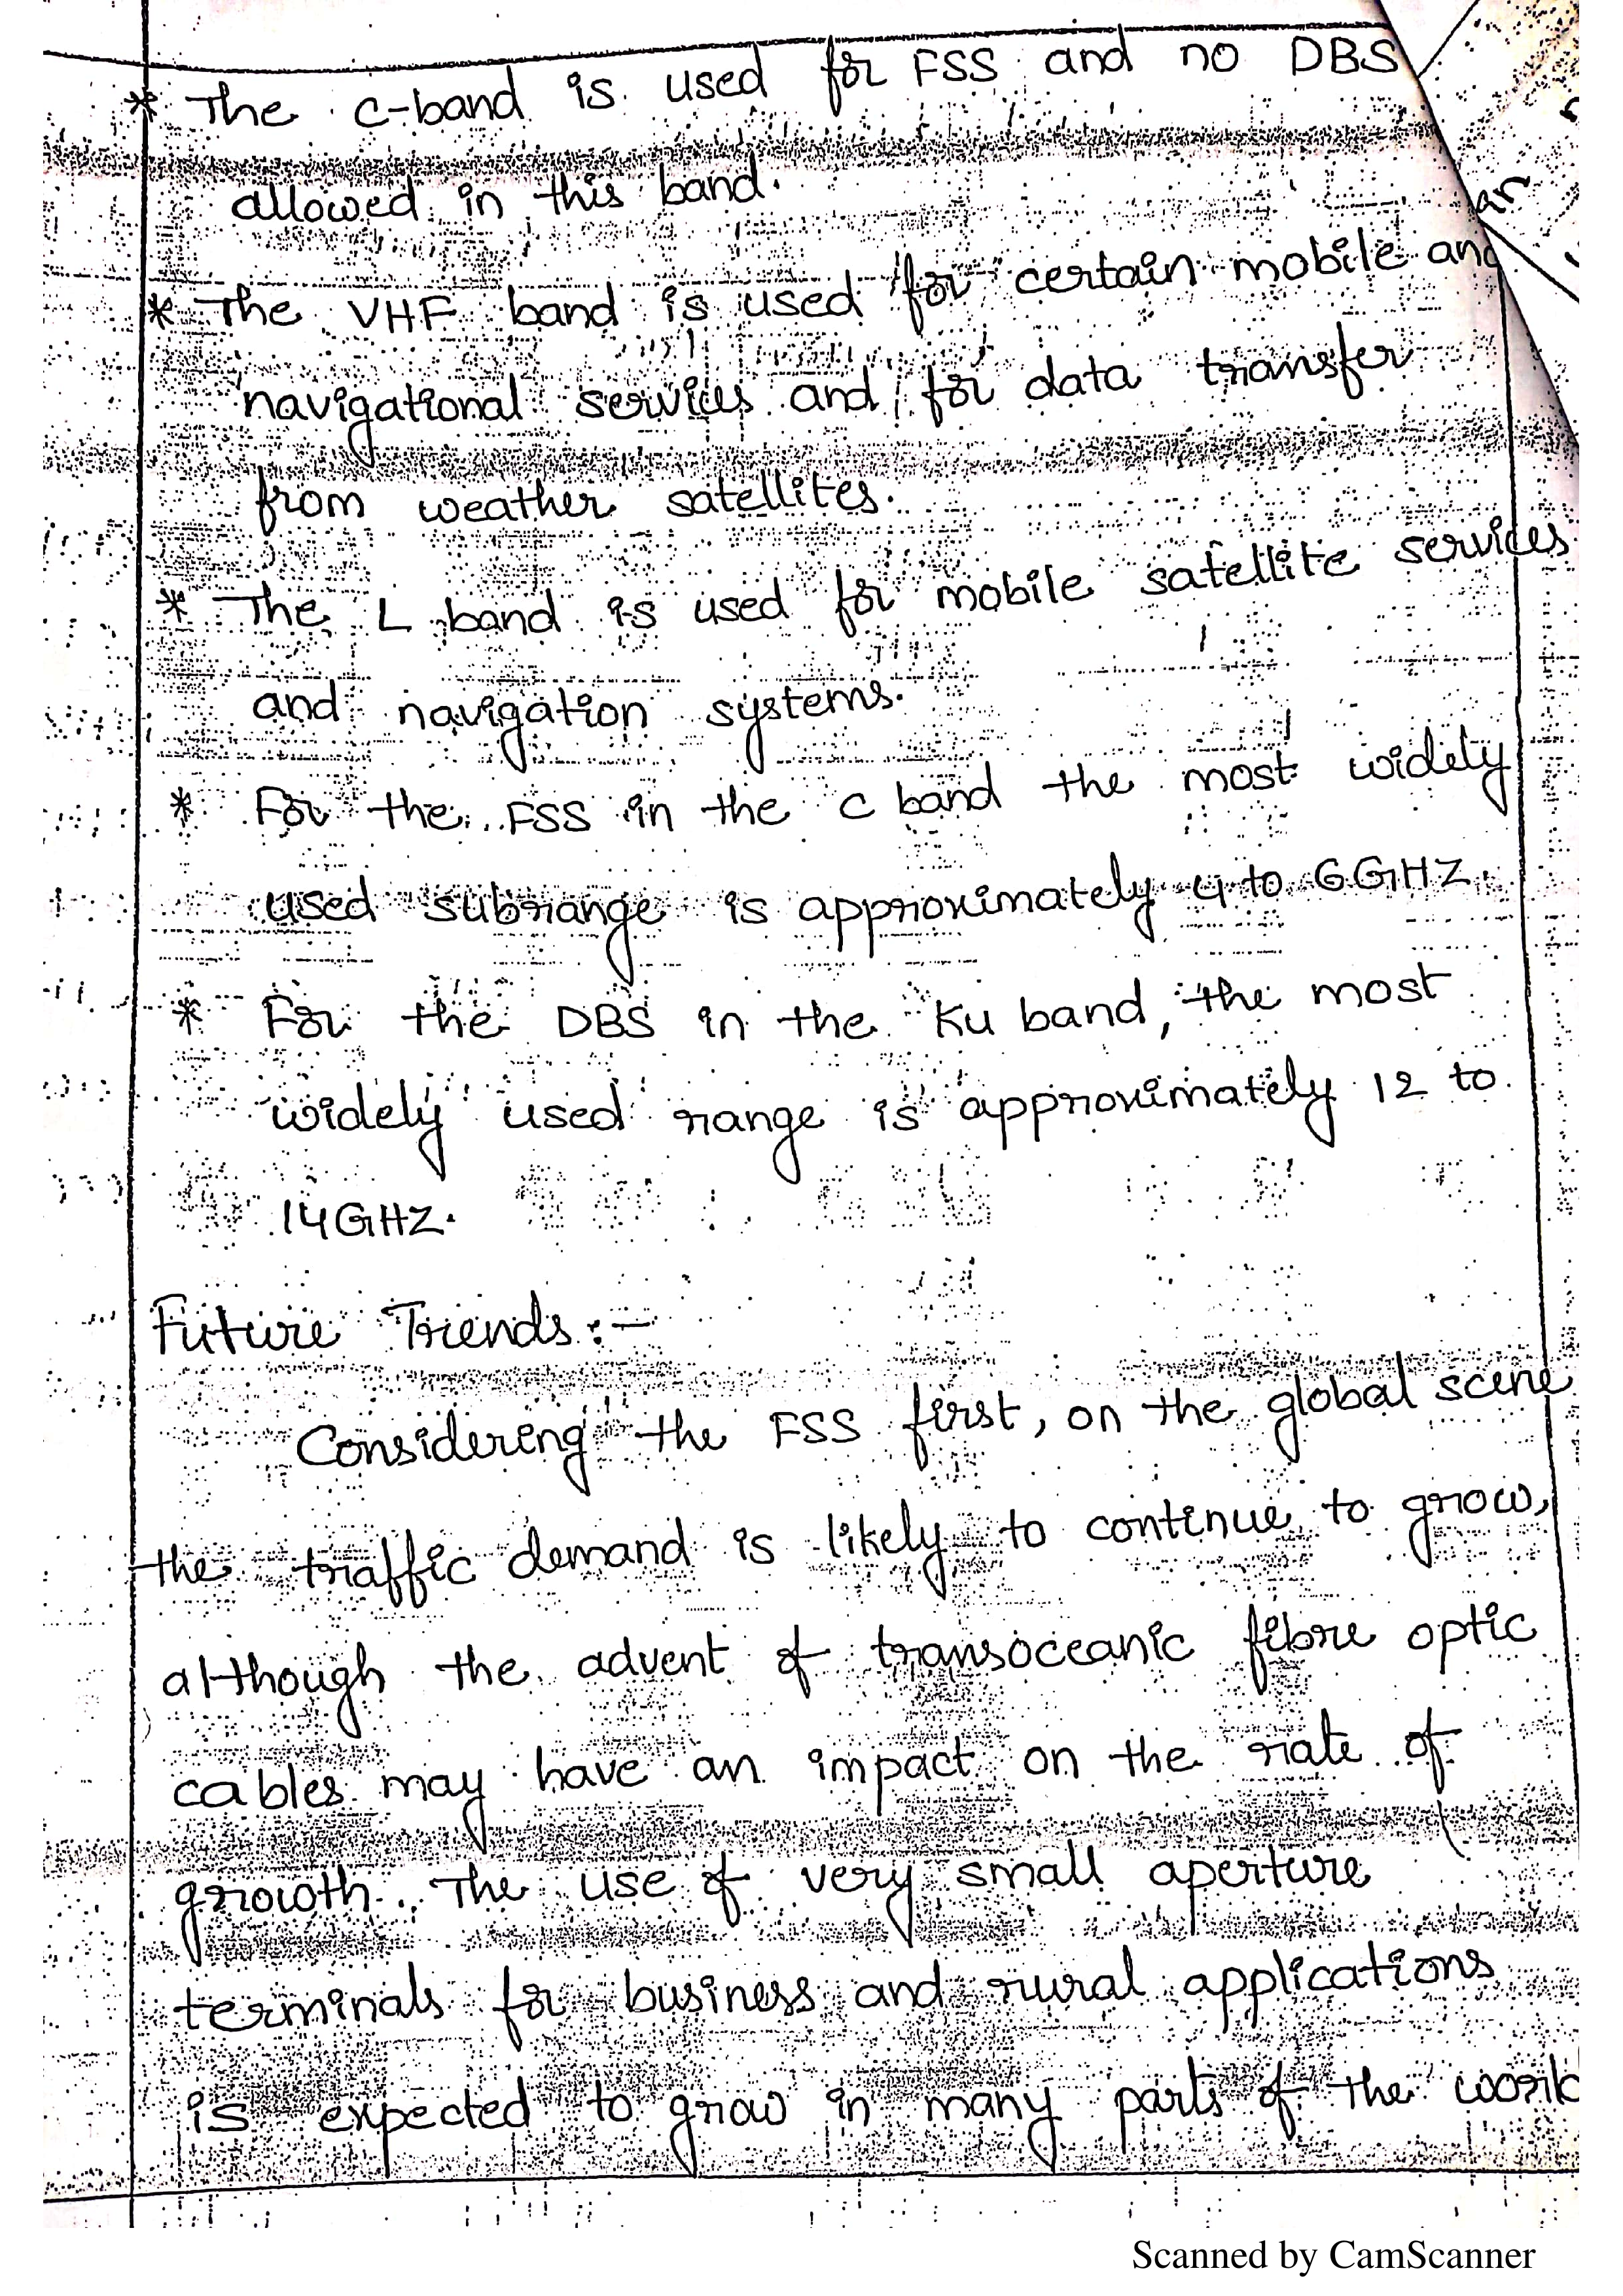 * The C-band is used for FSS and no DBS
allowed in this band.
* The VHF band is used for certain mobile and
navigational services and for data transfer
from weather satellites.
* The L band is used for mobile satellite services
and navigation systems.
* For the FSS in the C band the most widely
used subrange is approximately 4 to 6GHZ.
* For the DBS in the Ku band, the most
widely used range is approximately 12 to
14GHZ.
Future Trends:-
Considering the FSS first, on the global scene
the traffic demand is likely to continue to grow,
although the advent of transoceanic fibre optic
cables may have an impact on the rate of
growth. The use of very small aperture
terminals for business and rural applications
is expected to grow in many parts of the world
Scanned by CamScanner